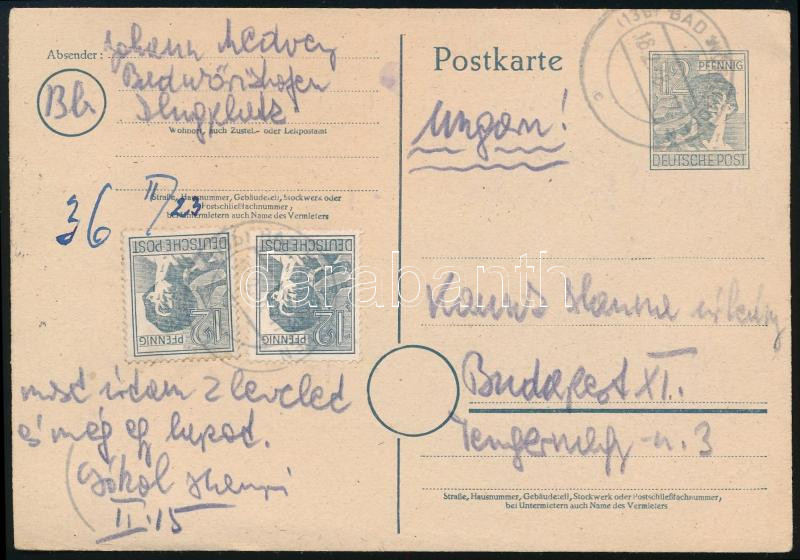 Absender: Johann Medvey
Badwörishofen
Flugplatz
Bh
Wohnort, auch Zustel- oder Leitpostamt
36 II/23
Straße, Hausnummer, Gebäudeteil, Stockwerk oder
Postschließfachnummer,
bei Untermietern auch Name des Vermieters
DEUTSCHE POST
12
PFENNIG
DEUTSCHE POST
12
PFENNIG
most írtam 2 levelet
és még egy lapot.
Henri
II.15
Postkarte
Ungarn!
(13b) BAD
18
c
12 PFENNIG
DEUTSCHE POST
Hanna
Budapest XI.
u. 3
Straße, Hausnummer, Gebäudeteil, Stockwerk oder Postschließfachnummer,
bei Untermietern auch Name des Vermieters
darabanth